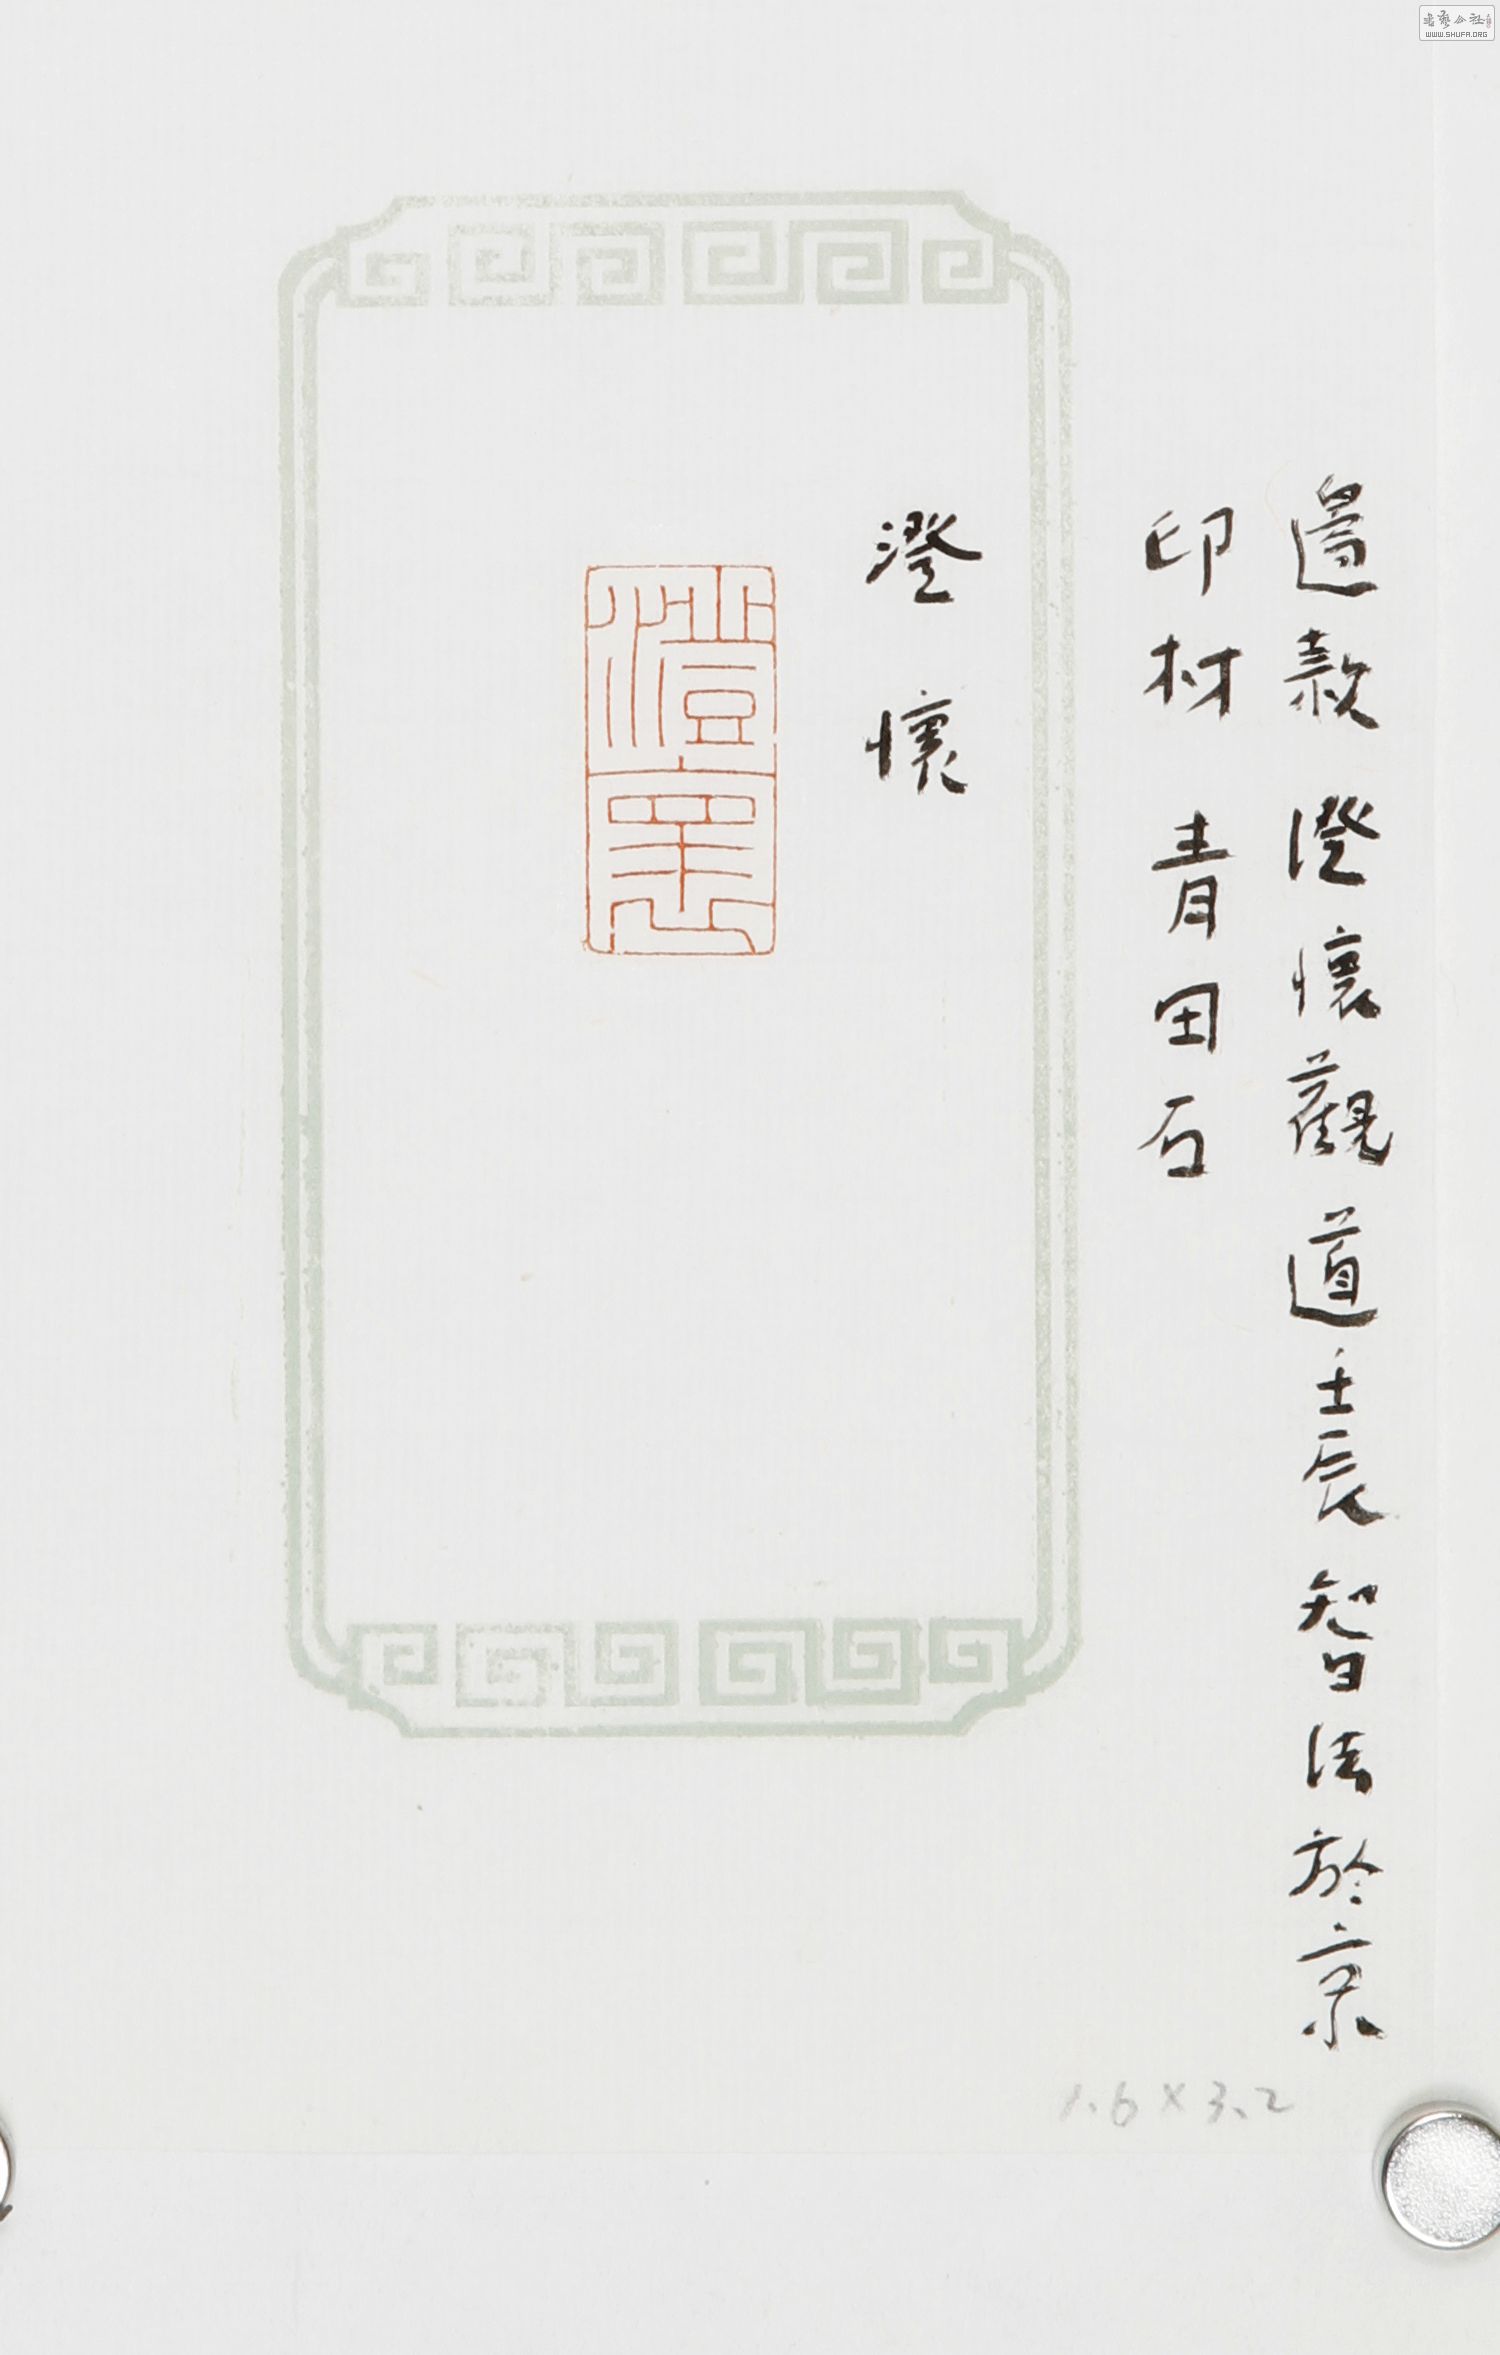 邊款 澄懷觀道 壬辰 智法於京
印材 青田石
澄懷
澄懷
1.6×3.2
書藝公社
WWW.SHUFA.ORG